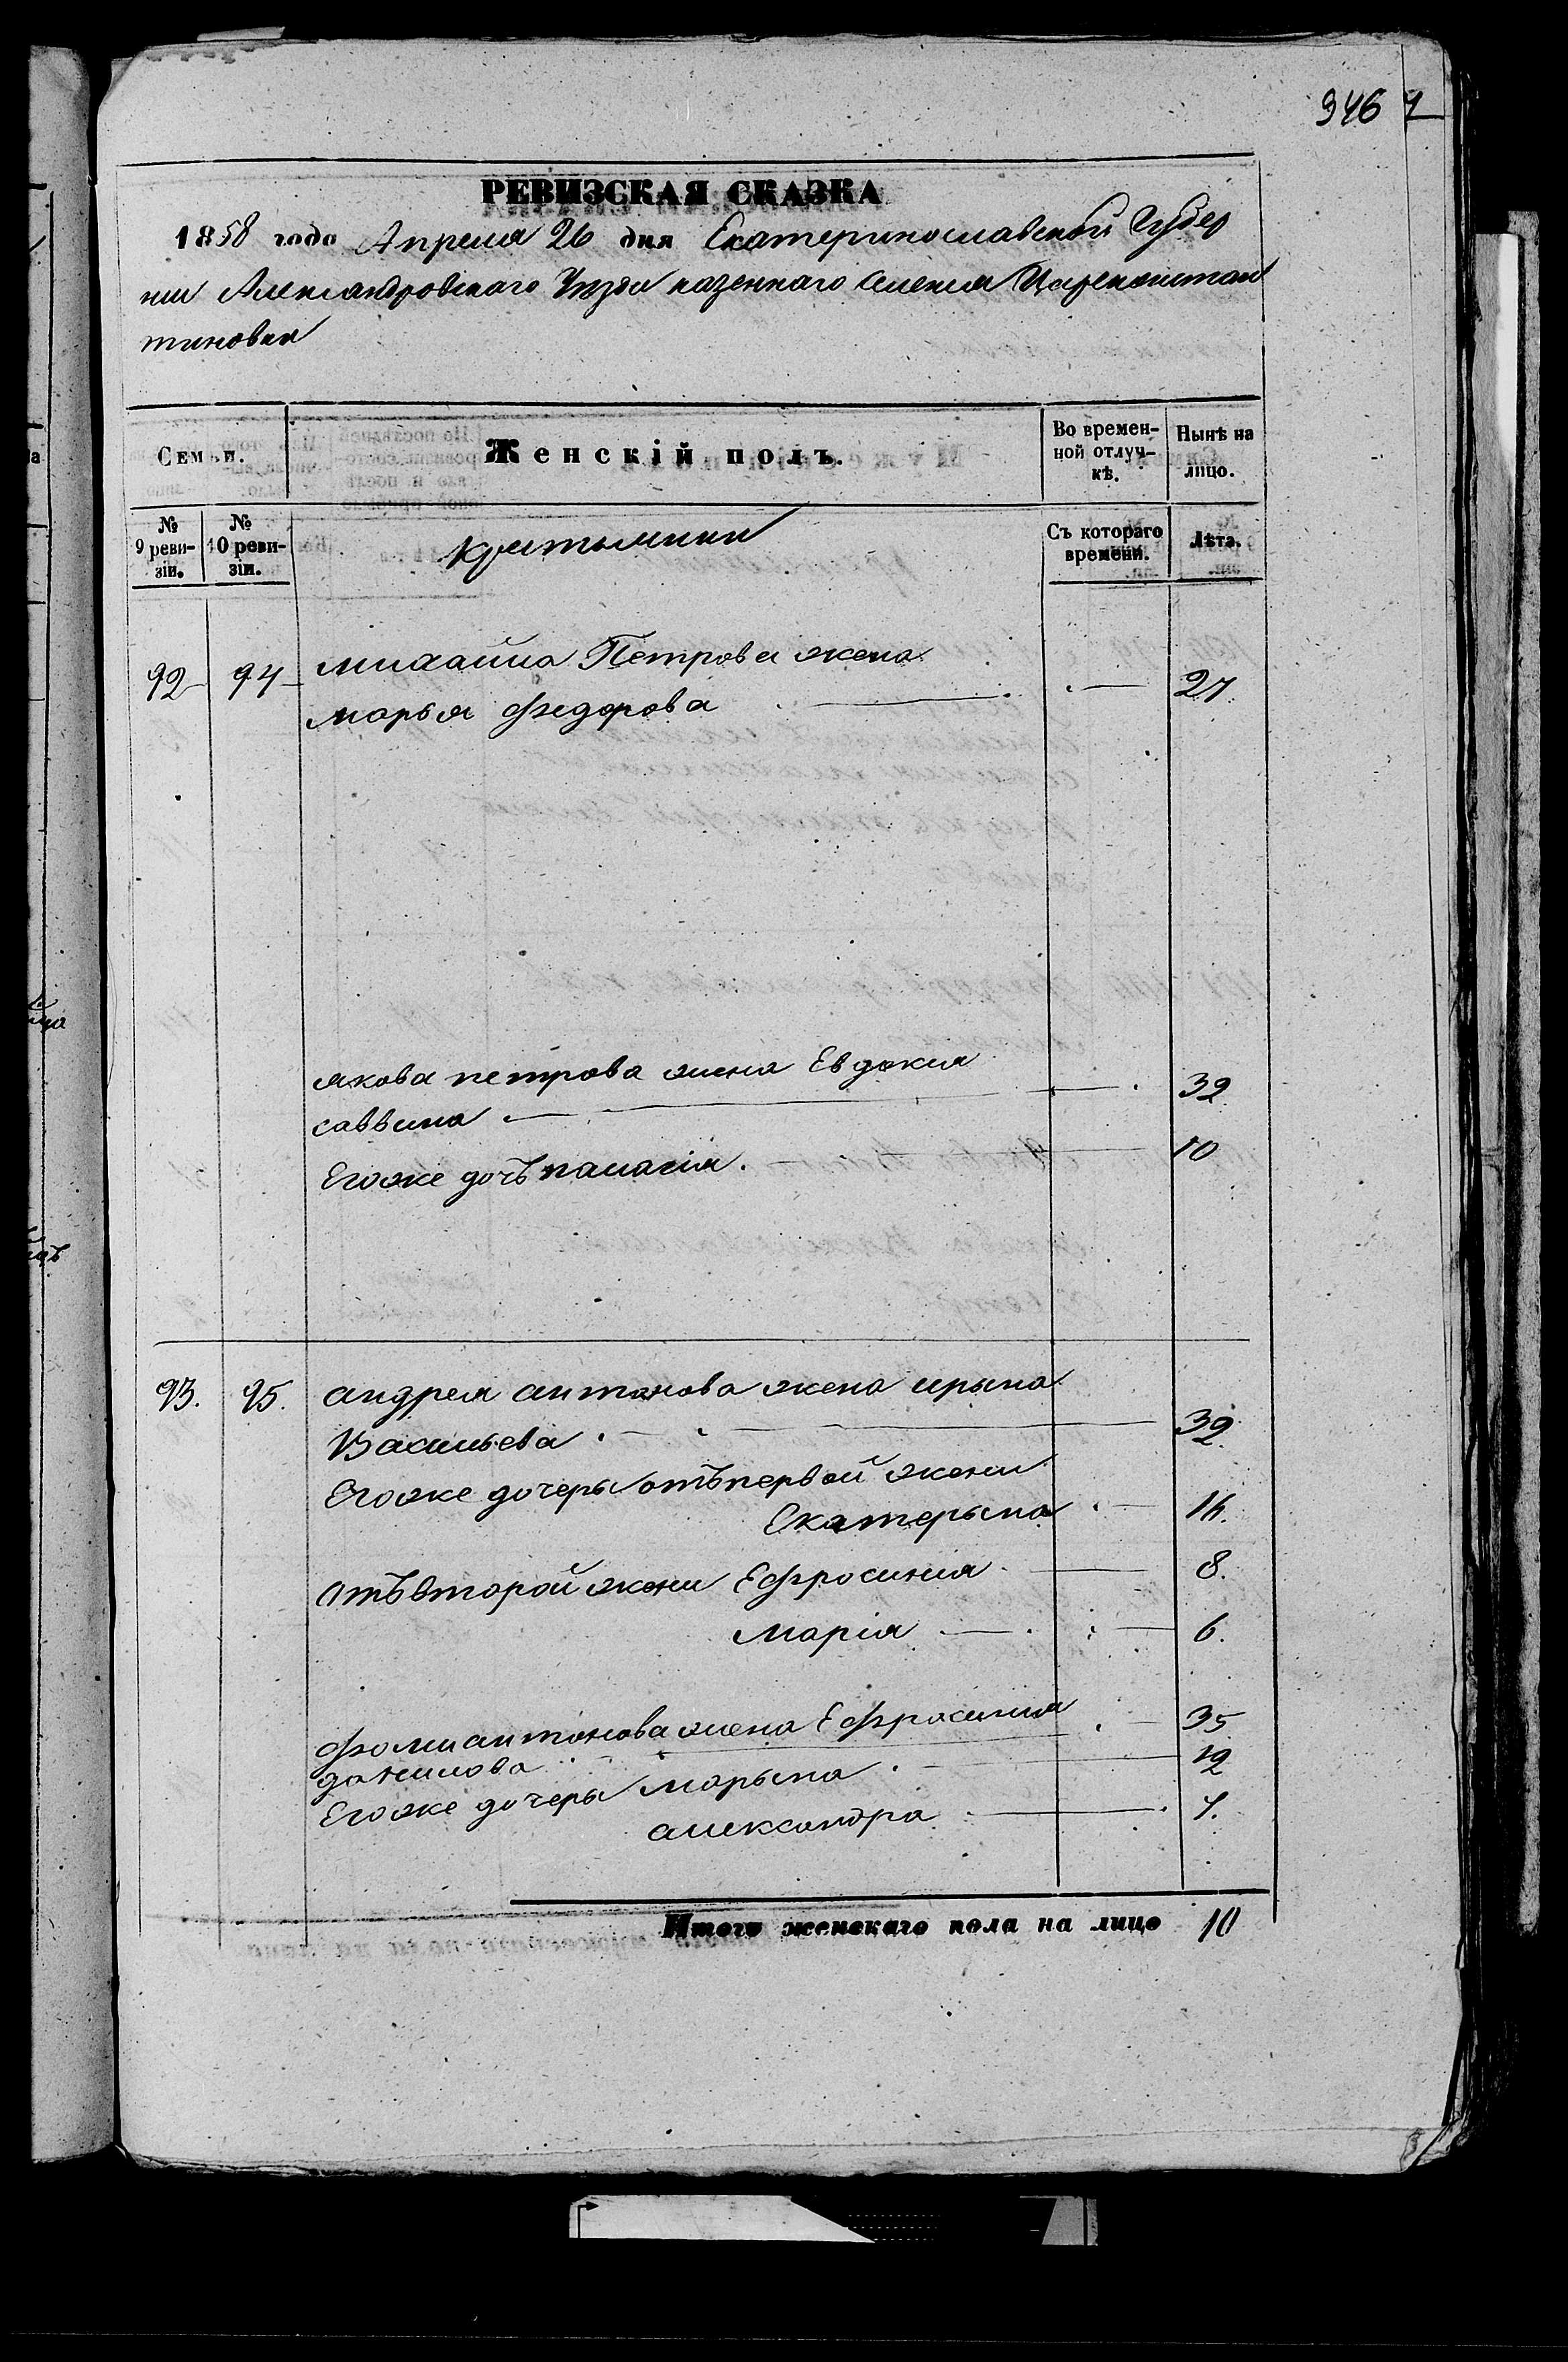 946
РЕВИЗСКАЯ СКАЗКА
1858 года Апреля 26 дня Екатеринославской Губер
нии Александровского Уезда казенного селения Цареконстан
тиновки
Семьи.
Женскій полъ.
Во времен-
ной отлуч-
кѣ.
Нынѣ на
лицо.
№
9 реви-
зіи.
№
10 реви-
зіи.
Съ котораго
времени.
Лѣта.
92 94 михайла Петрова жена
марья федорова 27
якова петрова жена Евдокия
саввина 32
Егоже дочъ палагія. 10
93. 95. андрея антонова жена ирына
Васильева 32
Егоже дочеры отъ первой жени
Екатерына 14.
отъ второй жени Ефросинія 8.
Марія 6.
фоми антонова жена Ефросиния
данилова 35
Егоже дочеры марына 12
александра
Итого женскаго пола на лицо 10